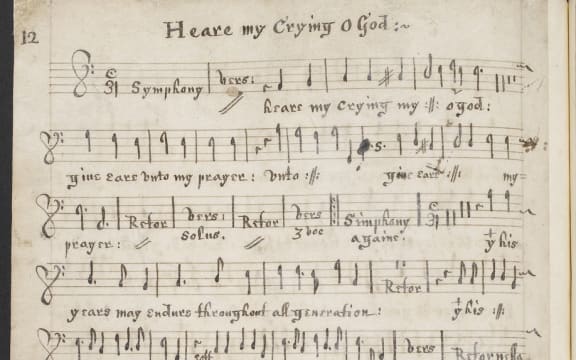 12
Heare my Crying O God:~
Symphony vers:
heare my Crying my :||: o god:
giue eare vnto my prayer: vnto :||: giue eare :||: my=
Retor vers: Retor vers Simphony
solus. 3 voc againe.
prayer: yt his
Retor
yeares may endure throughout all generation: yt his :||:
vers Retornello